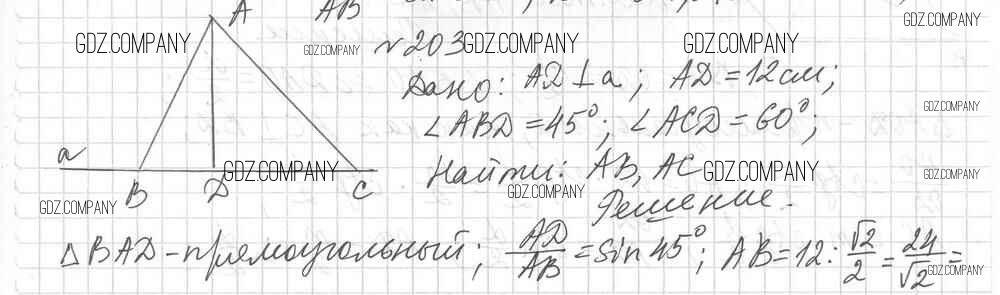 AB
A
GDZ.COMPANY GDZ.COMPANY № 203 GDZ.COMPANY GDZ.COMPANY GDZ.COMPANY
Дано: AD ⊥ a; AD = 12 см;
∠ABD = 45°; ∠ACD = 60°; GDZ.COMPANY
a
B D C
GDZ.COMPANY Найти: AB, AC GDZ.COMPANY GDZ.COMPANY
GDZ.COMPANY GDZ.COMPANY Решение.
△BAD - прямоугольный; AD/AB = sin 45°; AB = 12 : √2/2 = 24/√2 =
GDZ.COMPANY